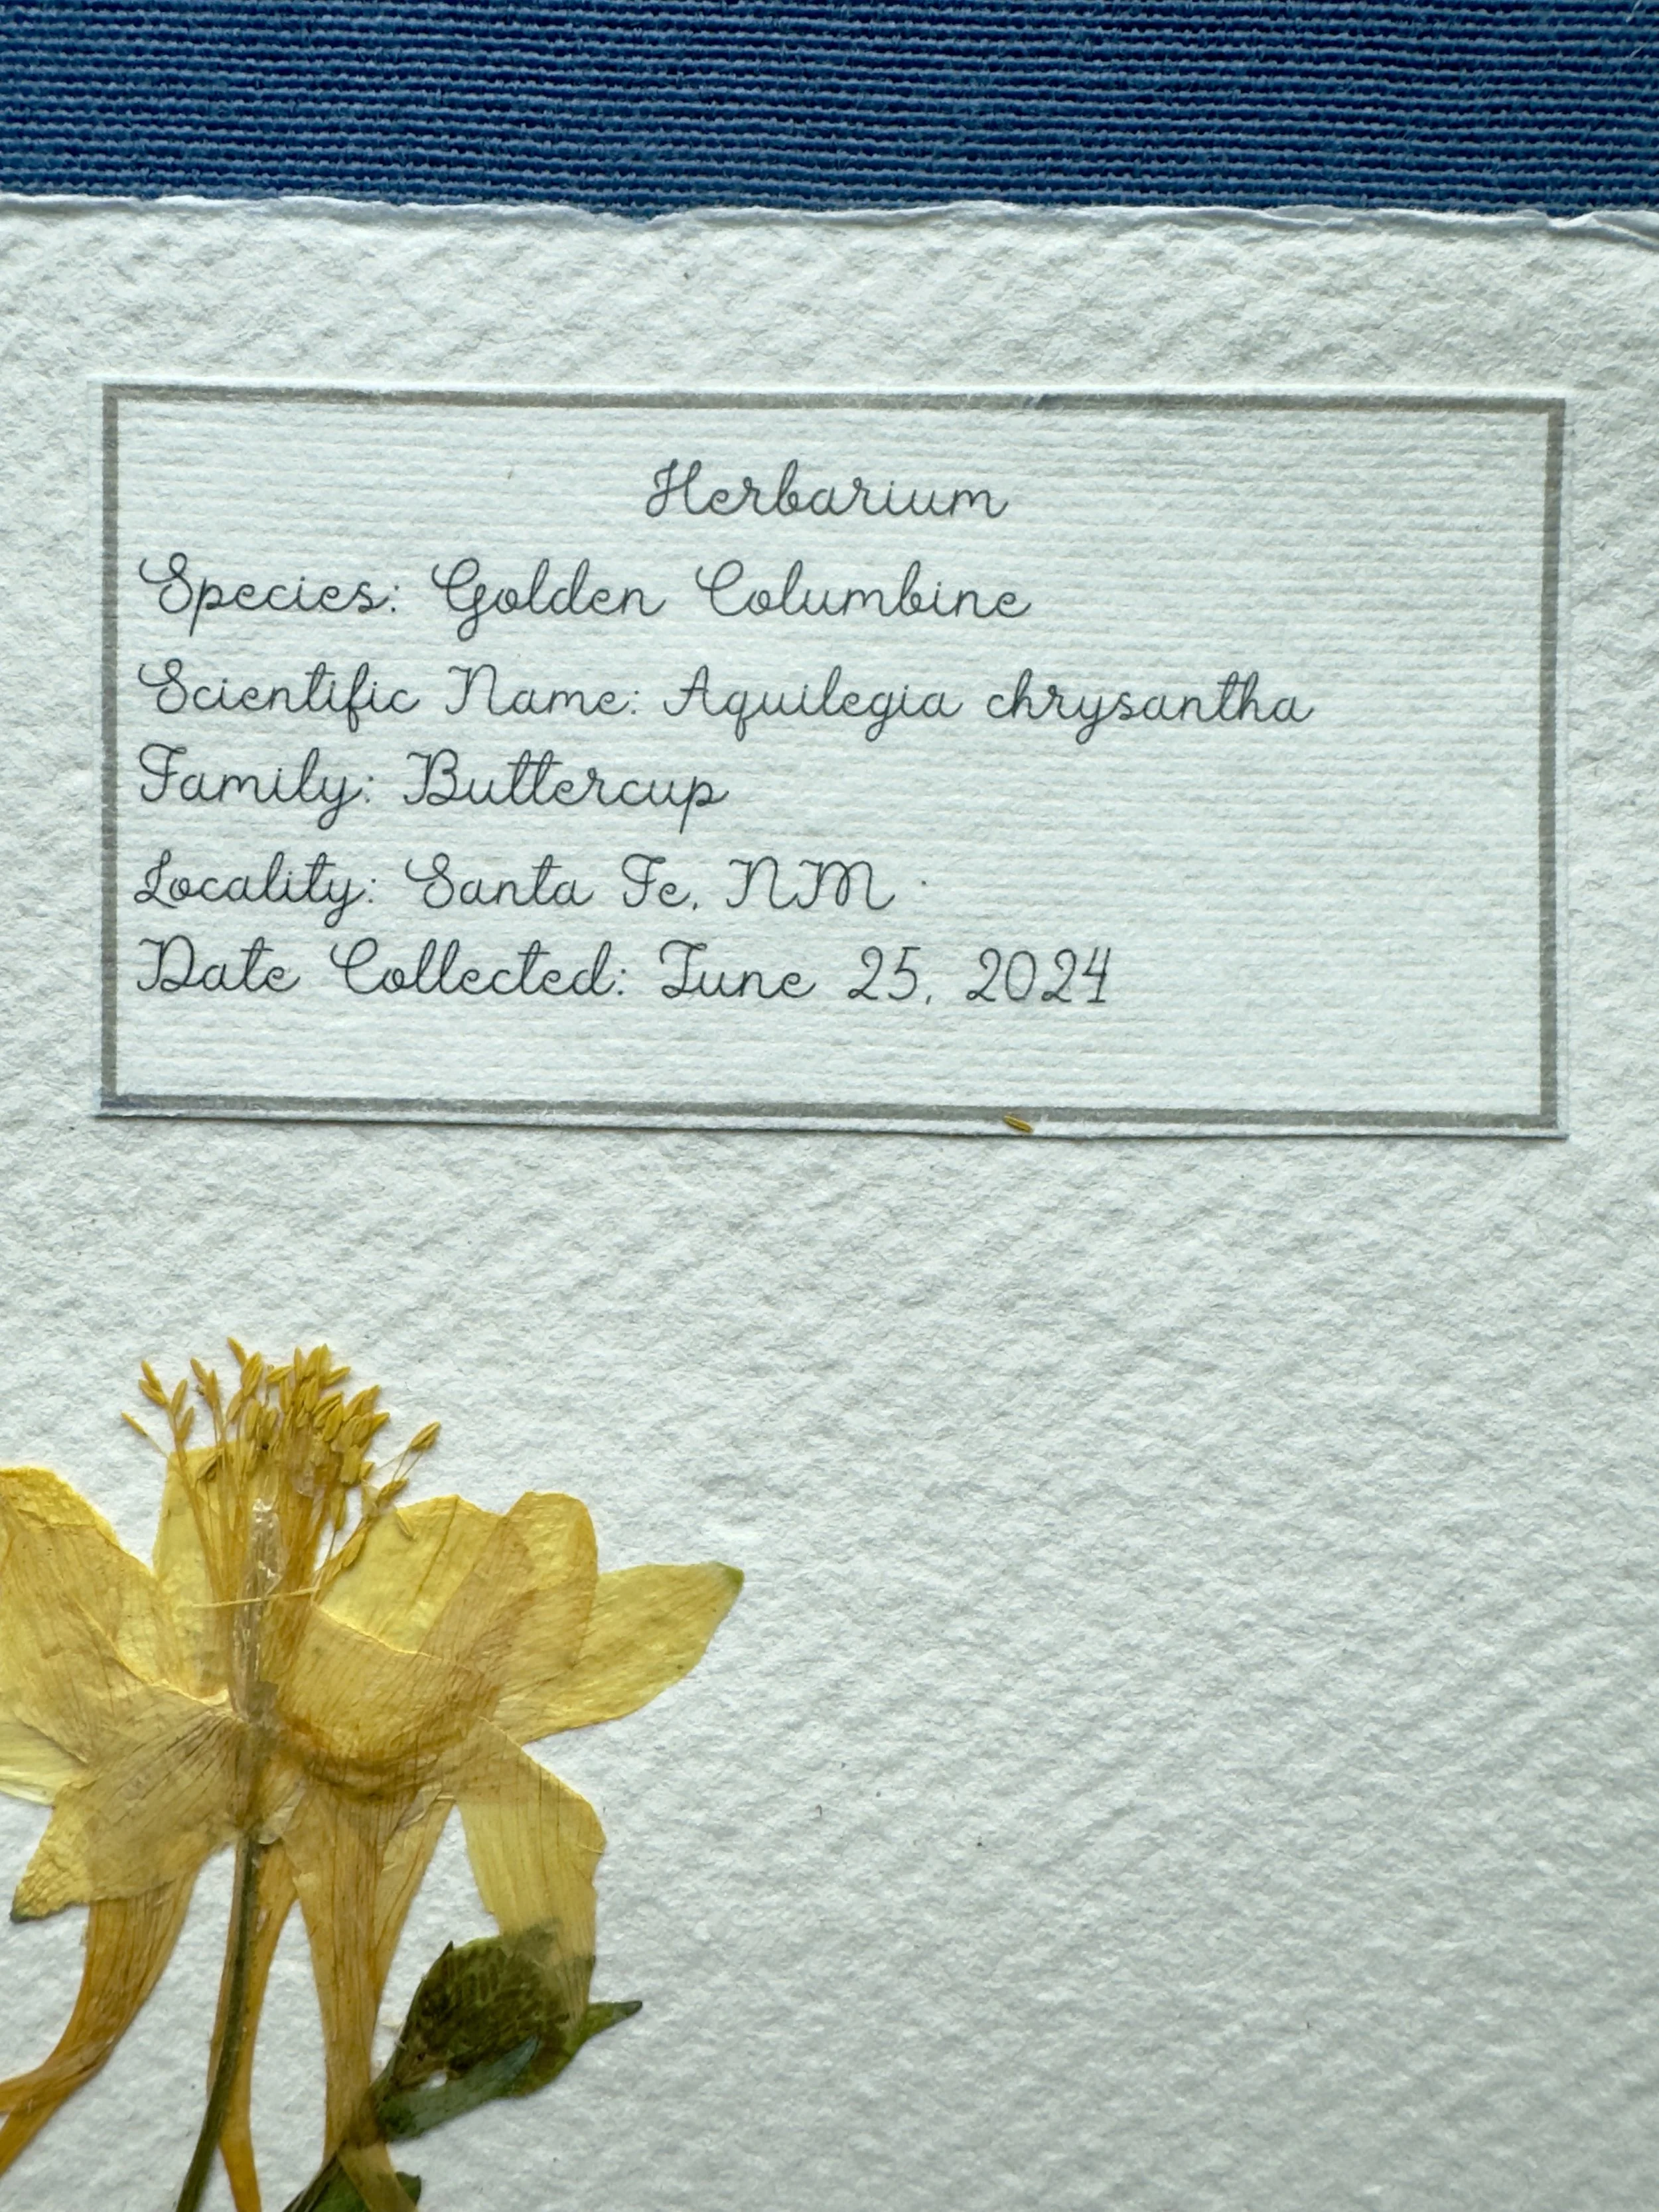 Herbarium
Species: Golden Columbine
Scientific Name: Aquilegia chrysantha
Family: Buttercup
Locality: Santa Fe, NM
Date Collected: June 25, 2024